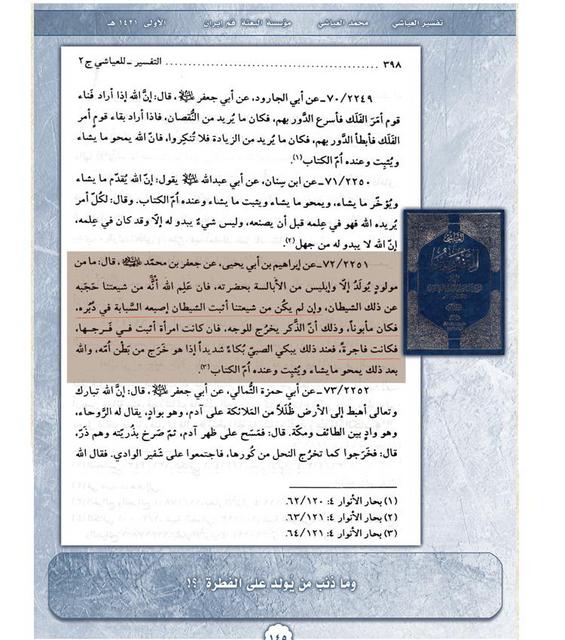 تفسير العياشي محمد العياشي مؤسسة البعثة قم ايران الاولى ١٤٢١ هـ
٣٩٨ .......................................................... التفسير ـ للعياشي ج٢
٢٢٤٩/ ٧٠ ـ عن أبي الجارود، عن أبي جعفر ﵇، قال: إنَّ الله إذا أراد فَناء
قومٍ أمَرَ الفَلَك فأسرع الدَّور بهم، فكان ما يُريد من النُّقصان، فاذا أراد بقاء قوم أمر
الفَلَك فأبطأ الدَّور بهم، فكان ما يُريد من الزيادة فلا تُنكِروا، فانّ الله يمحو ما يشاء
ويُثبِت وعنده أُمّ الكتاب(١).
٢٢٥٠/ ٧١ ـ عن ابن سِنان، عن أبي عبدالله ﵇ يقول: إنّ الله يُقدّم ما يشاء
ويُؤخّر ما يشاء، ويمحو ما يشاء ويثبت ما يشاء وعنده أُمّ الكتاب. وقال: لكُلّ أمر
يُريده الله فهو في عِلمه قبل أن يصنعه، وليس شيءٌ يبدو له إلّا وقد كان في عِلمه،
إنّ الله لا يبدو له من جهل(٢).
٢٢٥١/ ٧٢ ـ عن إبراهيم بن أبي يحيى، عن جعفر بن محمّد ﵇، قال: ما من
مولودٍ يُولَدُ إلّا وإبليس من الأبالسة بحضرته، فان عَلِم الله أنَّه من شيعتنا حَجَبه
عن ذلك الشيطان، وإن لم يكُن من شيعتنا أثبت الشيطان إصبعه السَّبابة في دُبُره،
فكان مأبوناً، وذلك أنّ الذَّكر يخرُج للوجه، فان كانت امرأة أثبت في فرجها،
فكانت فاجرةً، فعند ذلك يبكي الصبيّ بُكاءً شديداً إذا هو خَرَج من بَطْن اُمّه، والله
بعد ذلك يمحو ما يشاء ويُثبِت وعنده أُمّ الكتاب(٣).
٢٢٥٢/ ٧٣ ـ عن أبي حمزة الثُّمالي، عن أبي جعفر ﵇، قال: إنَّ الله تبارك
وتعالى أهبط إلى الأرض ظُلَلاً من المَلائكة على آدم، وهو بوادٍ، يقال له الرَّوحاء،
وهو وادٍ بين الطائف ومكّة. قال: فمَسح على ظهر آدم، ثمّ صَرخ بذُريّته وهم ذَرّ،
قال: فخَرجوا كما تخرُج النحل من كُورها، فاجتمعوا على شَفير الوادي. فقال الله
(١) بحار الأنوار ٤: ٦٢/١٢٠.
(٢) بحار الأنوار ٤: ٦٣/١٢١.
(٣) بحار الأنوار ٤: ٦٤/١٢١.
وما ذنب من يُولد على الفطرة ؟!
١٤٥